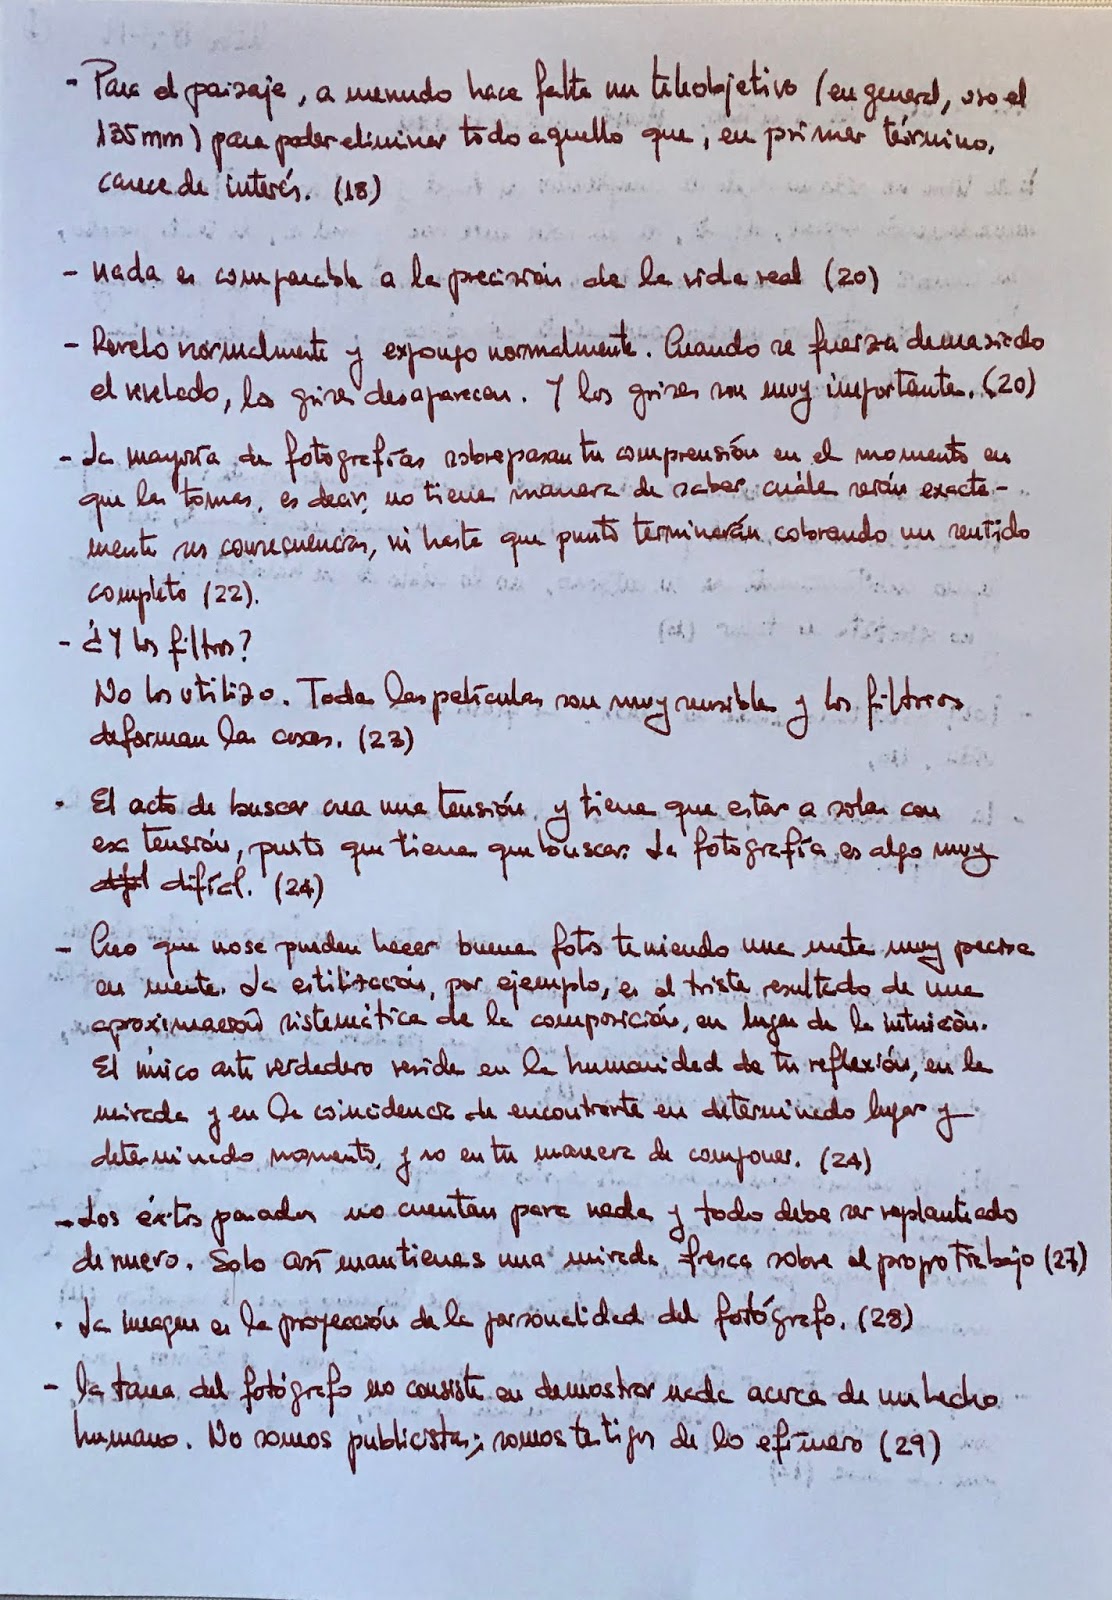 - Para el paisaje, a menudo hace falta un teleobjetivo (en general, uso el
135mm) para poder eliminar todo aquello que, en primer término,
carece de interés. (18)
- Nada es comparable a la precisión de la vida real (20)
- Revelo normalmente y expongo normalmente. Cuando se fuerza demasiado
el revelado, los grises desaparecen. Y los grises son muy importantes. (20)
- La mayoría de fotografías sobrepasan tu comprensión en el momento en
que las tomas, es decir, no tienes manera de saber cuáles serán exacta-
mente sus consecuencias, ni hasta que punto terminarán cobrando un sentido
completo (22).
- ¿Y los filtros?
No los utilizo. Todas las películas son muy sensibles y los filtros
deforman las cosas. (23)
· El acto de buscar crea una tensión y tienes que estar a solas con
esa tensión, puesto que tienes que buscar. La fotografía es algo muy
difícil. (24)
- Creo que no se pueden hacer buenas fotos teniendo una meta muy precisa
en mente. La estilización, por ejemplo, es el triste resultado de una
aproximación sistemática de la composición, en lugar de la intuición.
El único arte verdadero reside en la humanidad de tu reflexión, en la
mirada y en la coincidencia de encontrarte en determinado lugar y
determinado momento, y no en tu manera de componer. (24)
- Los éxitos pasados no cuentan para nada y todo debe ser replanteado
de nuevo. Solo así mantienes una mirada fresca sobre el propio trabajo (27)
· La imagen es la proyección de la personalidad del fotógrafo. (28)
- La tarea del fotógrafo no consiste en demostrar nada acerca de un hecho
humano. No somos publicistas; somos testigos de lo efímero (29)